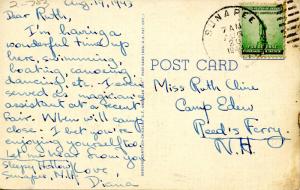 2-783 Aug 19, 1943
Dear Ruth,
I'm having a
wonderful time up
here, swimming,
boating, canoeing,
dancing, etc. I even
served as magician's
assistant at a recent
Fair. When will camp
close. I bet you're
enjoying yourself too.
Let me hear from you
Sleepy Hollow Love,
Sunapee, N.H. Diana
SUNAPEE
7 AM
POST CARD
Miss Ruth Cline
Camp Edew
Reed's Ferry,
N.H.